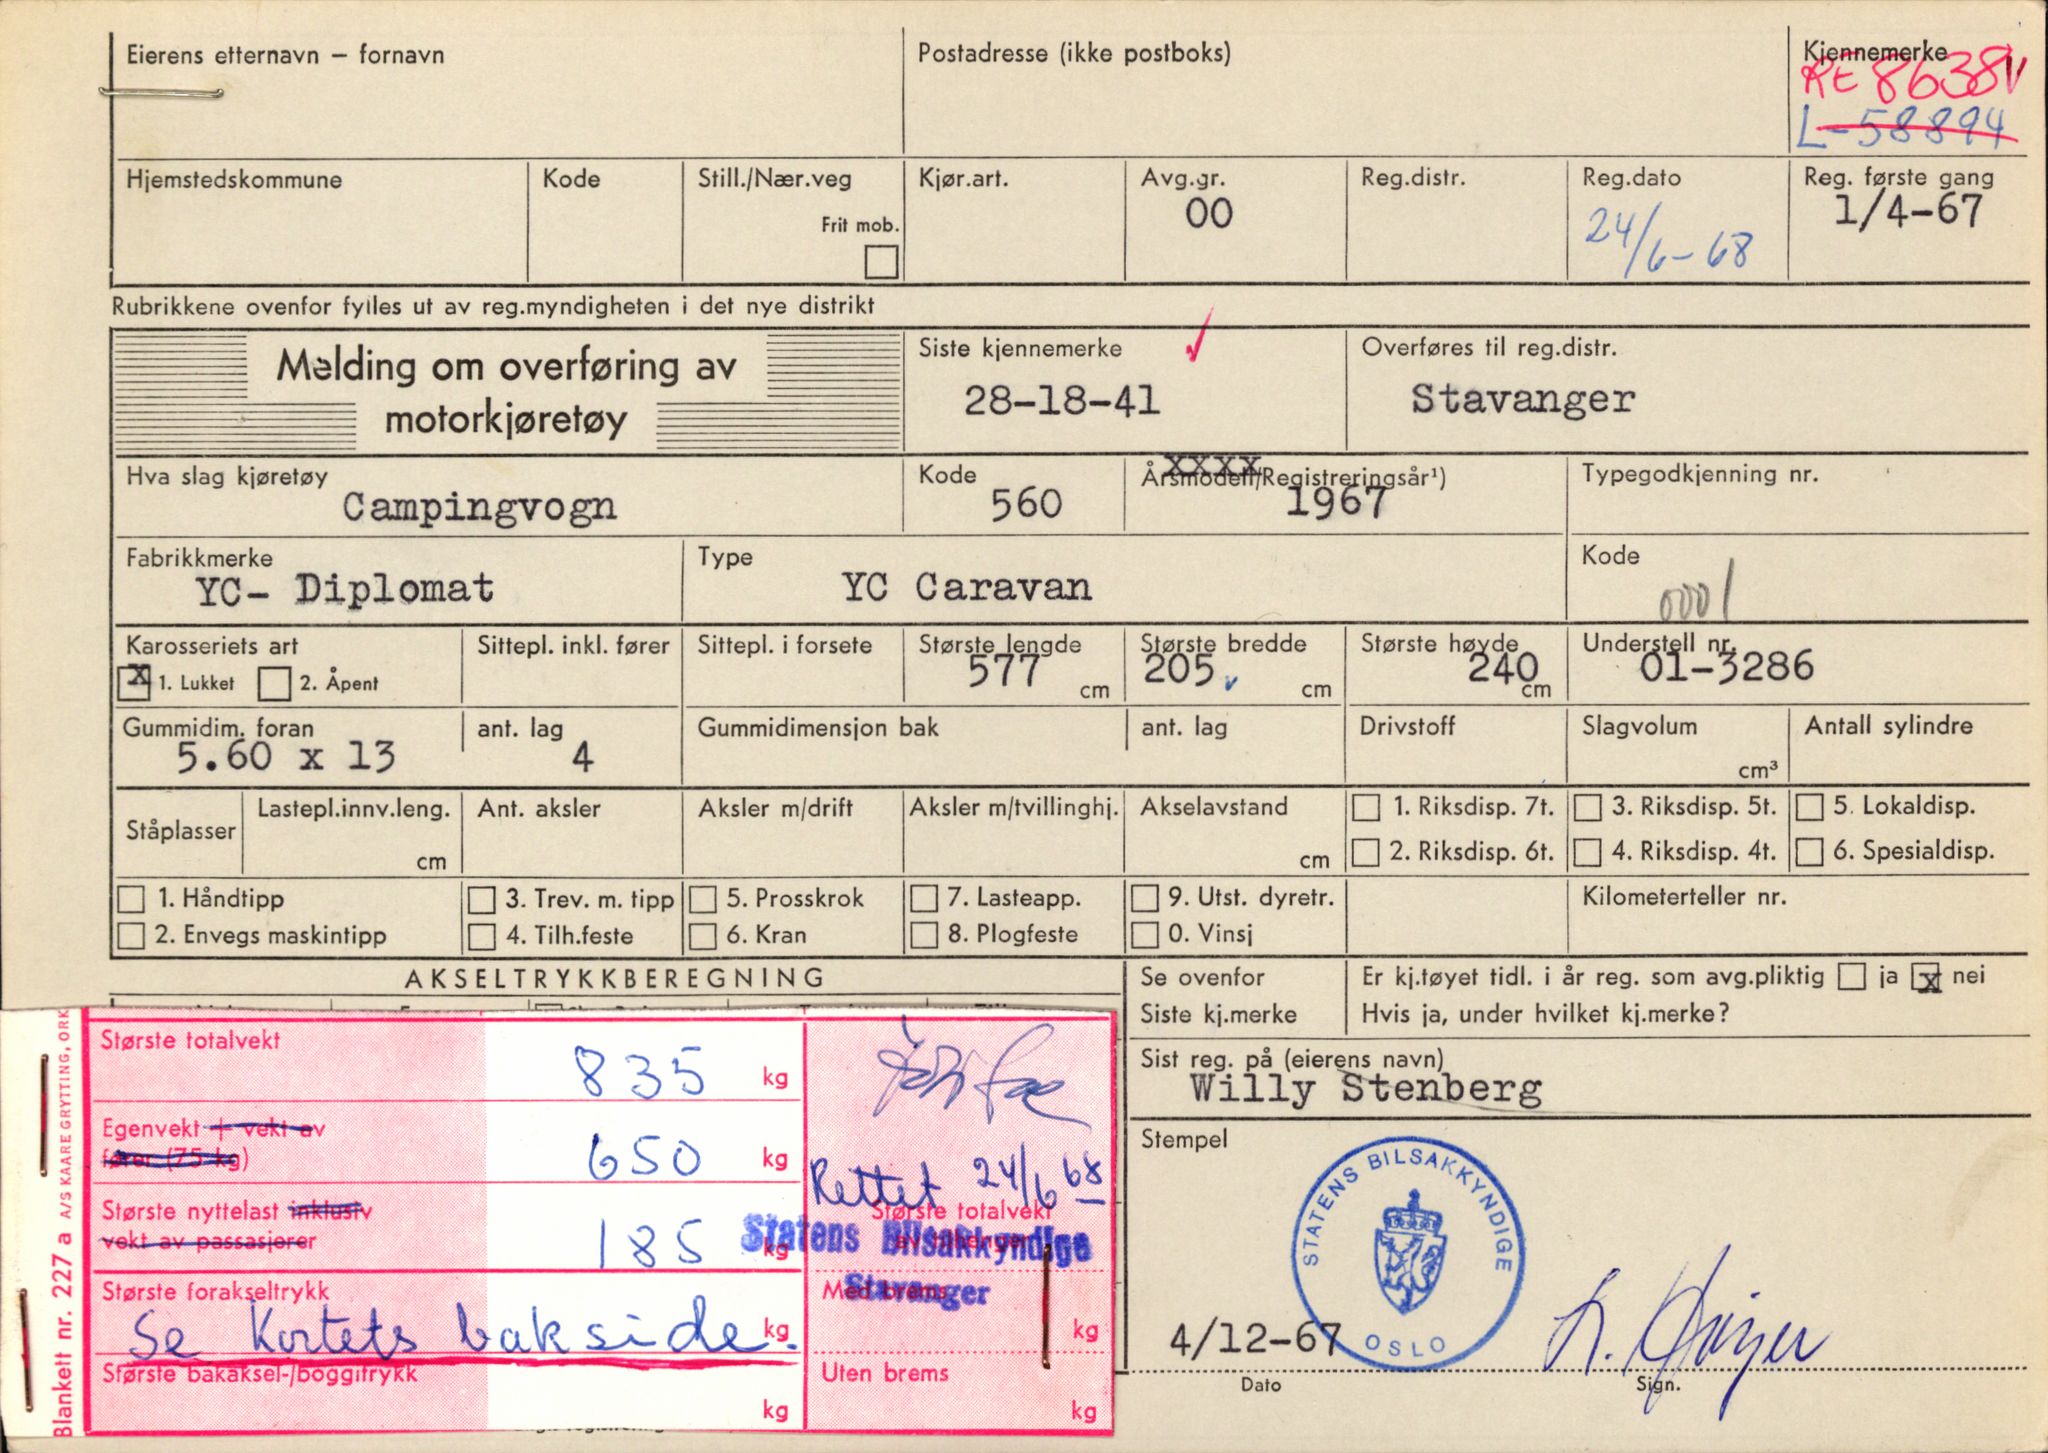 Eierens etternavn – fornavn
Postadresse (ikke postboks)
Kjennemerke
RE 8638
L-58894
Hjemstedskommune
Kode
Still./Nær.veg
Frit mob.
Kjør.art.
Avg.gr.
00
Reg.distr.
Reg.dato
24/6-68
Reg. første gang
1/4-67
Rubrikkene ovenfor fylles ut av reg.myndigheten i det nye distrikt
Melding om overføring av
motorkjøretøy
Siste kjennemerke
28-18-41
Overføres til reg.distr.
Stavanger
Hva slag kjøretøy
Campingvogn
Kode
560
Årsmodell/Registreringsår¹)
xxxx
1967
Typegodkjenning nr.
Fabrikkmerke
YC- Diplomat
Type
YC Caravan
Kode
0001
Karosseriets art
x 1. Lukket 2. Åpent
Sittepl. inkl. fører
Sittepl. i forsete
Største lengde
577 cm
Største bredde
205 cm
Største høyde
240 cm
Understell nr.
01-3286
Gummidim. foran
5.60 x 13
ant. lag
4
Gummidimensjon bak
ant. lag
Drivstoff
Slagvolum
cm³
Antall sylindre
Ståplasser
Lastepl.innv.leng.
cm
Ant. aksler
Aksler m/drift
Aksler m/tvillinghj.
Akselavstand
cm
1. Riksdisp. 7t.
3. Riksdisp. 5t.
5. Lokaldisp.
2. Riksdisp. 6t.
4. Riksdisp. 4t.
6. Spesialdisp.
1. Håndtipp
3. Trev. m. tipp
5. Prosskrok
7. Lasteapp.
9. Utst. dyretr.
Kilometerteller nr.
2. Envegs maskintipp
4. Tilh.feste
6. Kran
8. Plogfeste
0. Vinsj
AKSELTRYKKBEREGNING
Se ovenfor
Siste kj.merke
Er kj.tøyet tidl. i år reg. som avg.pliktig ja x nei
Hvis ja, under hvilket kj.merke?
Sist reg. på (eierens navn)
Willy Stenberg
Stempel
STATENS BILSAKKYNDIGE
OSLO
4/12-67
Dato
Sign.
Blankett nr. 227 a A/S KAARE GRYTTING, ORK
Største totalvekt
835 kg
Egenvekt + vekt av
fører (75 kg)
650 kg
Største nyttelast inklusiv
vekt av passasjerer
185 kg
Største forakseltrykk
kg
Se Kortets bakside.
Største bakaksel-/boggitrykk
kg
Rettet 24/6 68
Største totalvekt
Statens Bilsakkyndige
Stavanger
Med brems
kg
Uten brems
kg